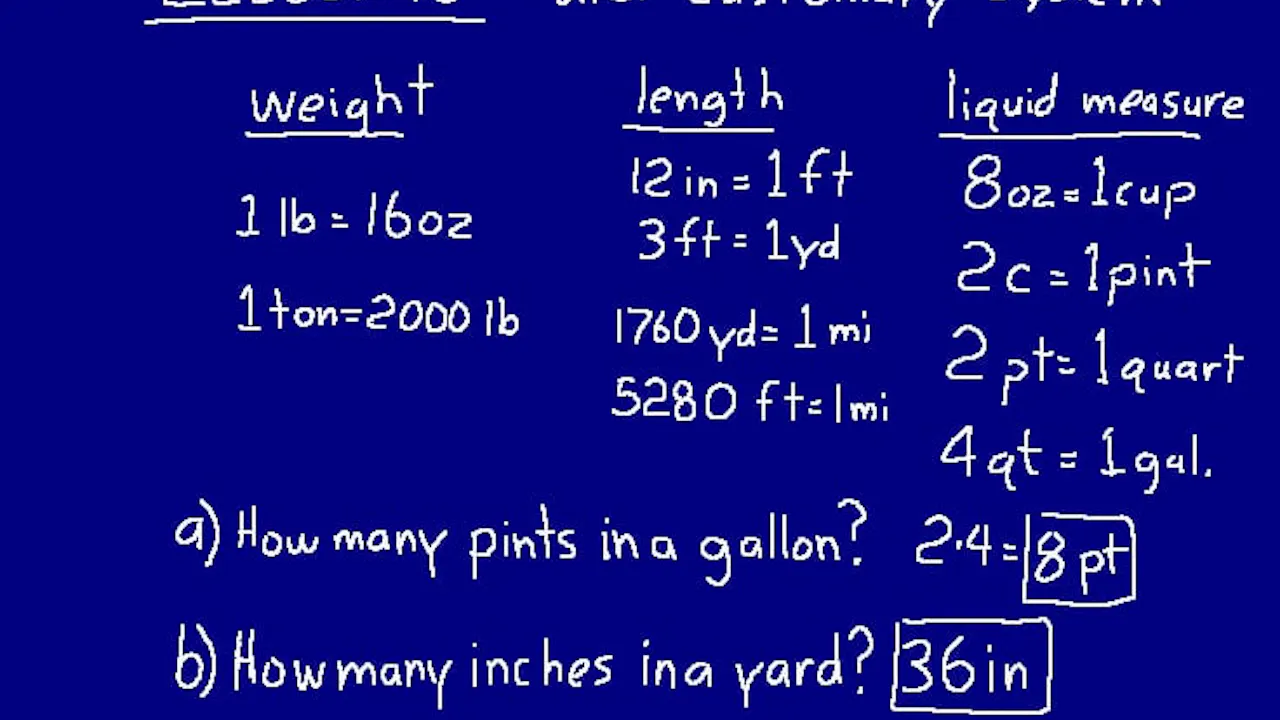 customary system
weight
1 lb = 16oz
1 ton=2000 lb
length
12 in = 1 ft
3 ft = 1yd
1760 yd= 1 mi
5280 ft=1mi
liquid measure
8oz=1cup
2 c = 1pint
2 pt= 1 quart
4 qt = 1gal.
a) How many pints in a gallon? 2·4=8 pt
b) How many inches in a yard? 36in